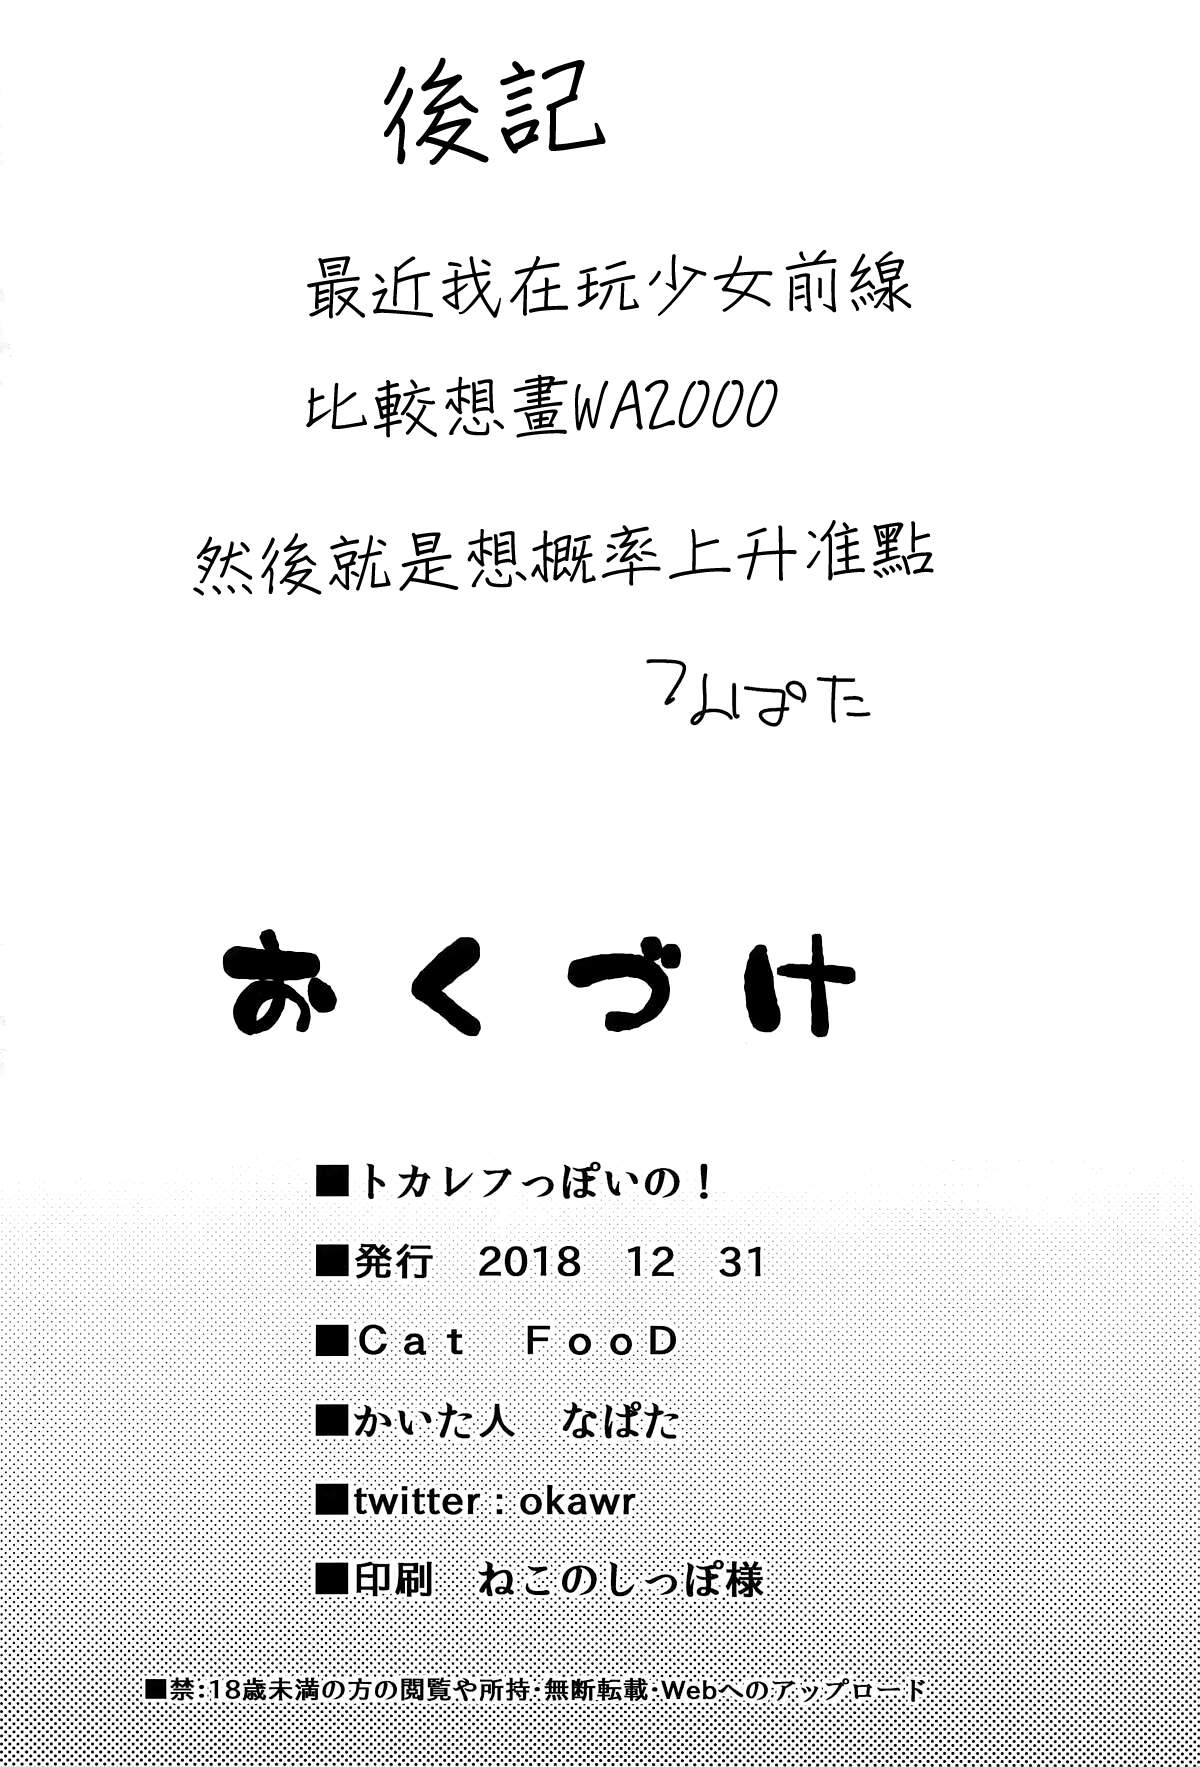 後記
最近我在玩少女前線
比較想畫WA2000
然後就是想概率上升准點
なぱた
おくづけ
■トカレフっぽいの!
■発行 2018 12 31
■Cat FooD
■かいた人 なぱた
■twitter : okawr
■印刷 ねこのしっぽ様
■禁:18歳未満の方の閲覧や所持･無断転載･Webへのアップロード